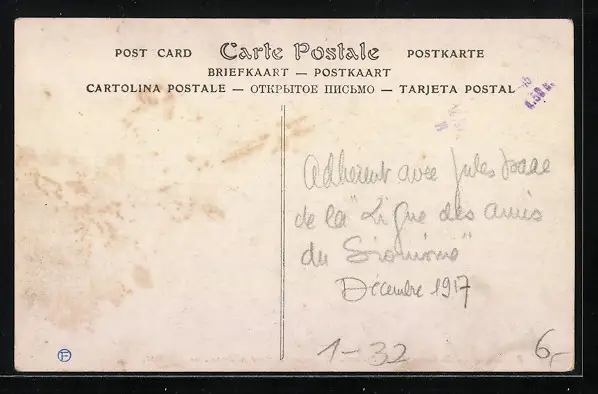 POST CARD Carte Postale POSTKARTE
BRIEFKAART — POSTKAART
CARTOLINA POSTALE — ОТКРЫТОЕ ПИСЬМО — TARJETA POSTAL
Adhérent avec Jules Isaac
de la "Ligue des amis
du Sionisme"
Décembre 1917
1-32
6,-
F